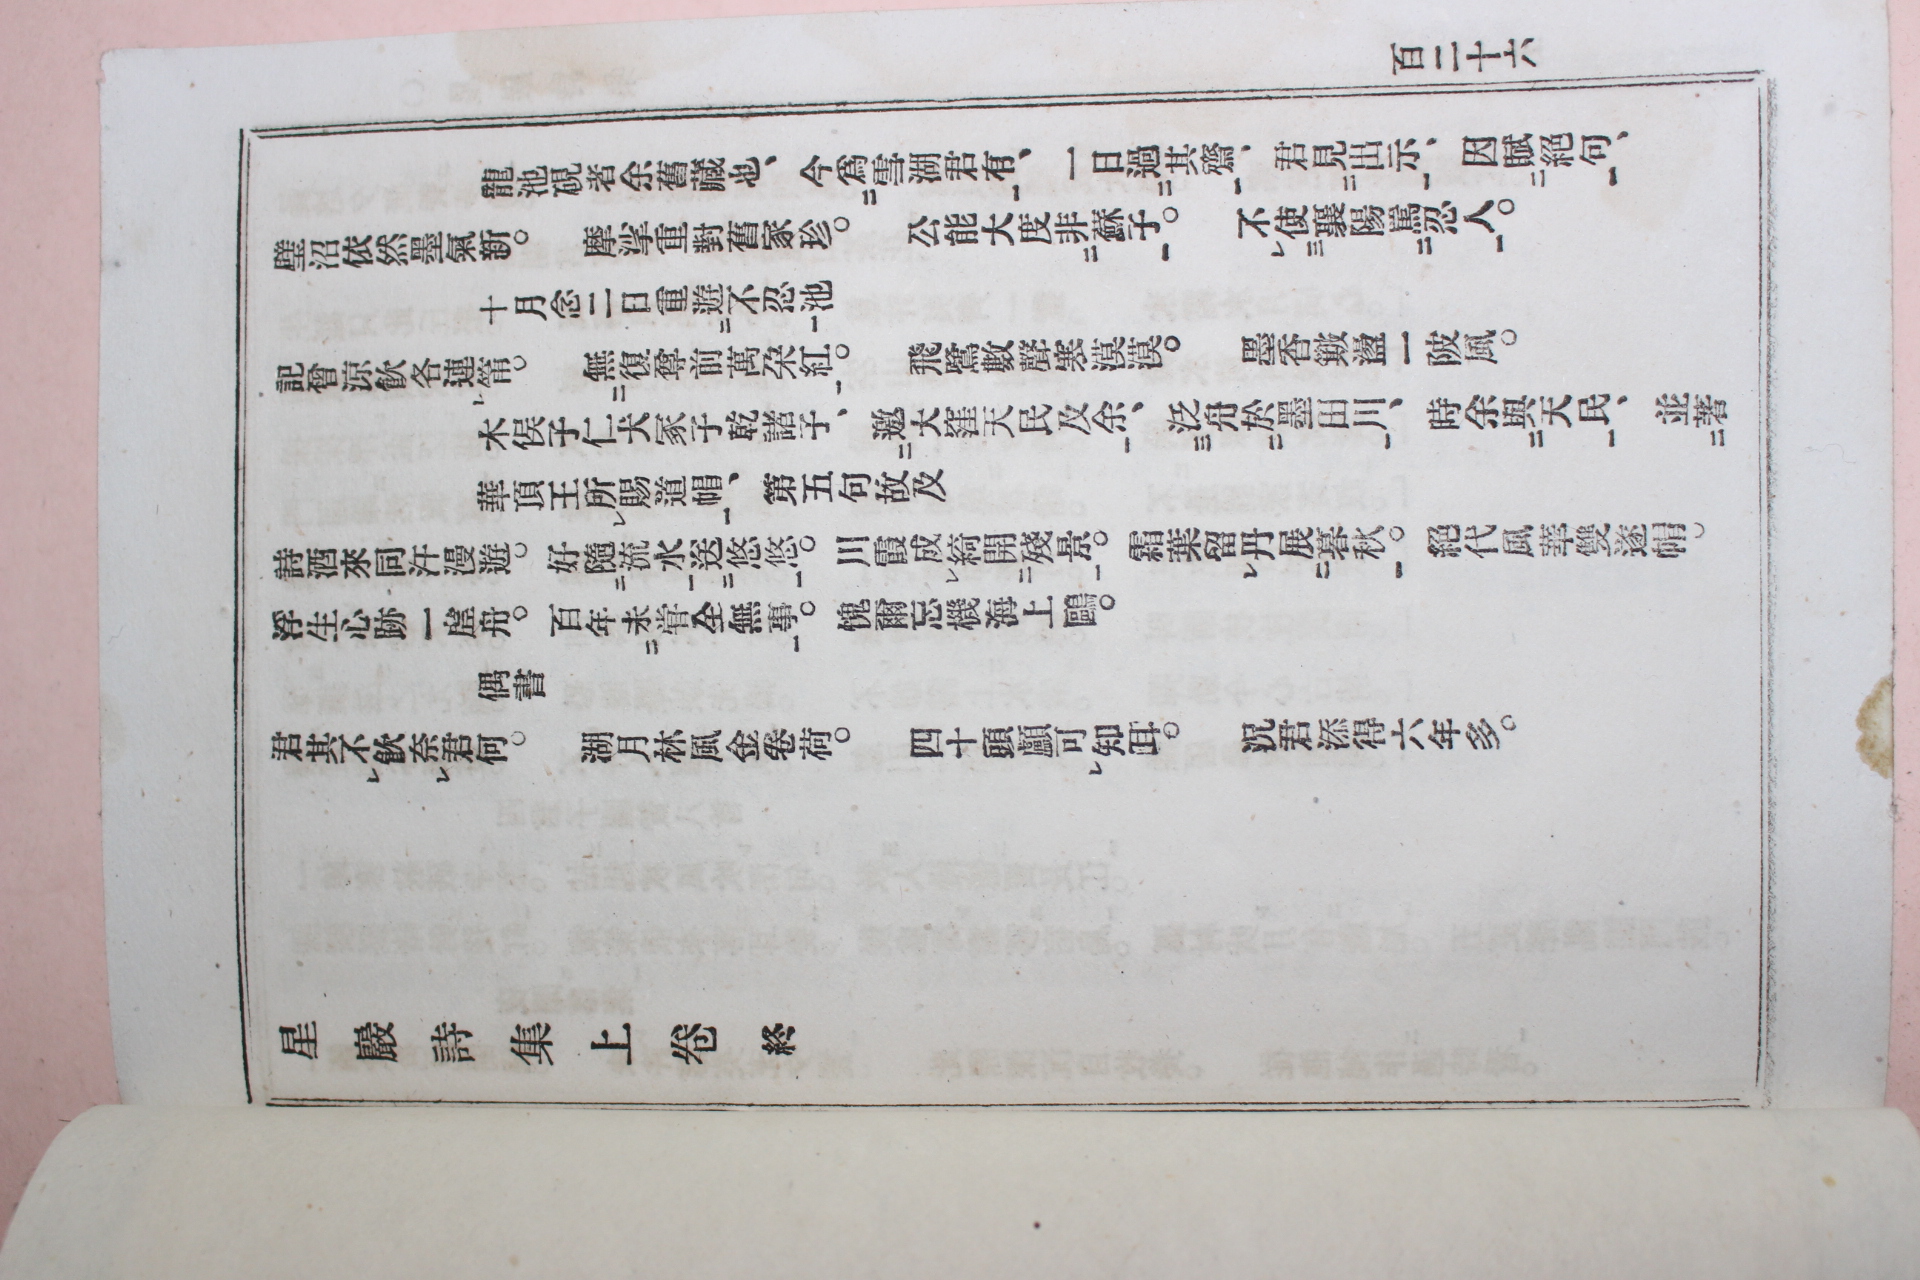 百二十六
龍池硯者余舊藏也、今爲雪湖君有、一日過其齋、君見出示、因賦絕句、
璧沼依然墨氣新。摩挲重對舊家珍。公能大度非蘇子。不使襄陽罵忍人。
十月念二日重遊不忍池
記曾涼飲各連筩。無復尊前萬朶紅。飛鷺數聲寒漠漠。墨香皺盪一陂風。
木俣子仁犬冢子乾諸子、邀大窪天民及余、泛舟於墨田川、時余與天民、並著
華頂王所賜道帽、第五句故及
詩酒來同汗漫遊。好隨流水送悠悠。川霞成綺開殘景。霜葉留丹展暮秋。絕代風華雙邃帽。
浮生心跡一虛舟。百年未嘗全無事。愧爾忘機海上鷗。
偶書
君其不飲奈君何。湖月林風金卷荷。四十頭顱可知耳。況君添得六年多。
星巖詩集上卷終